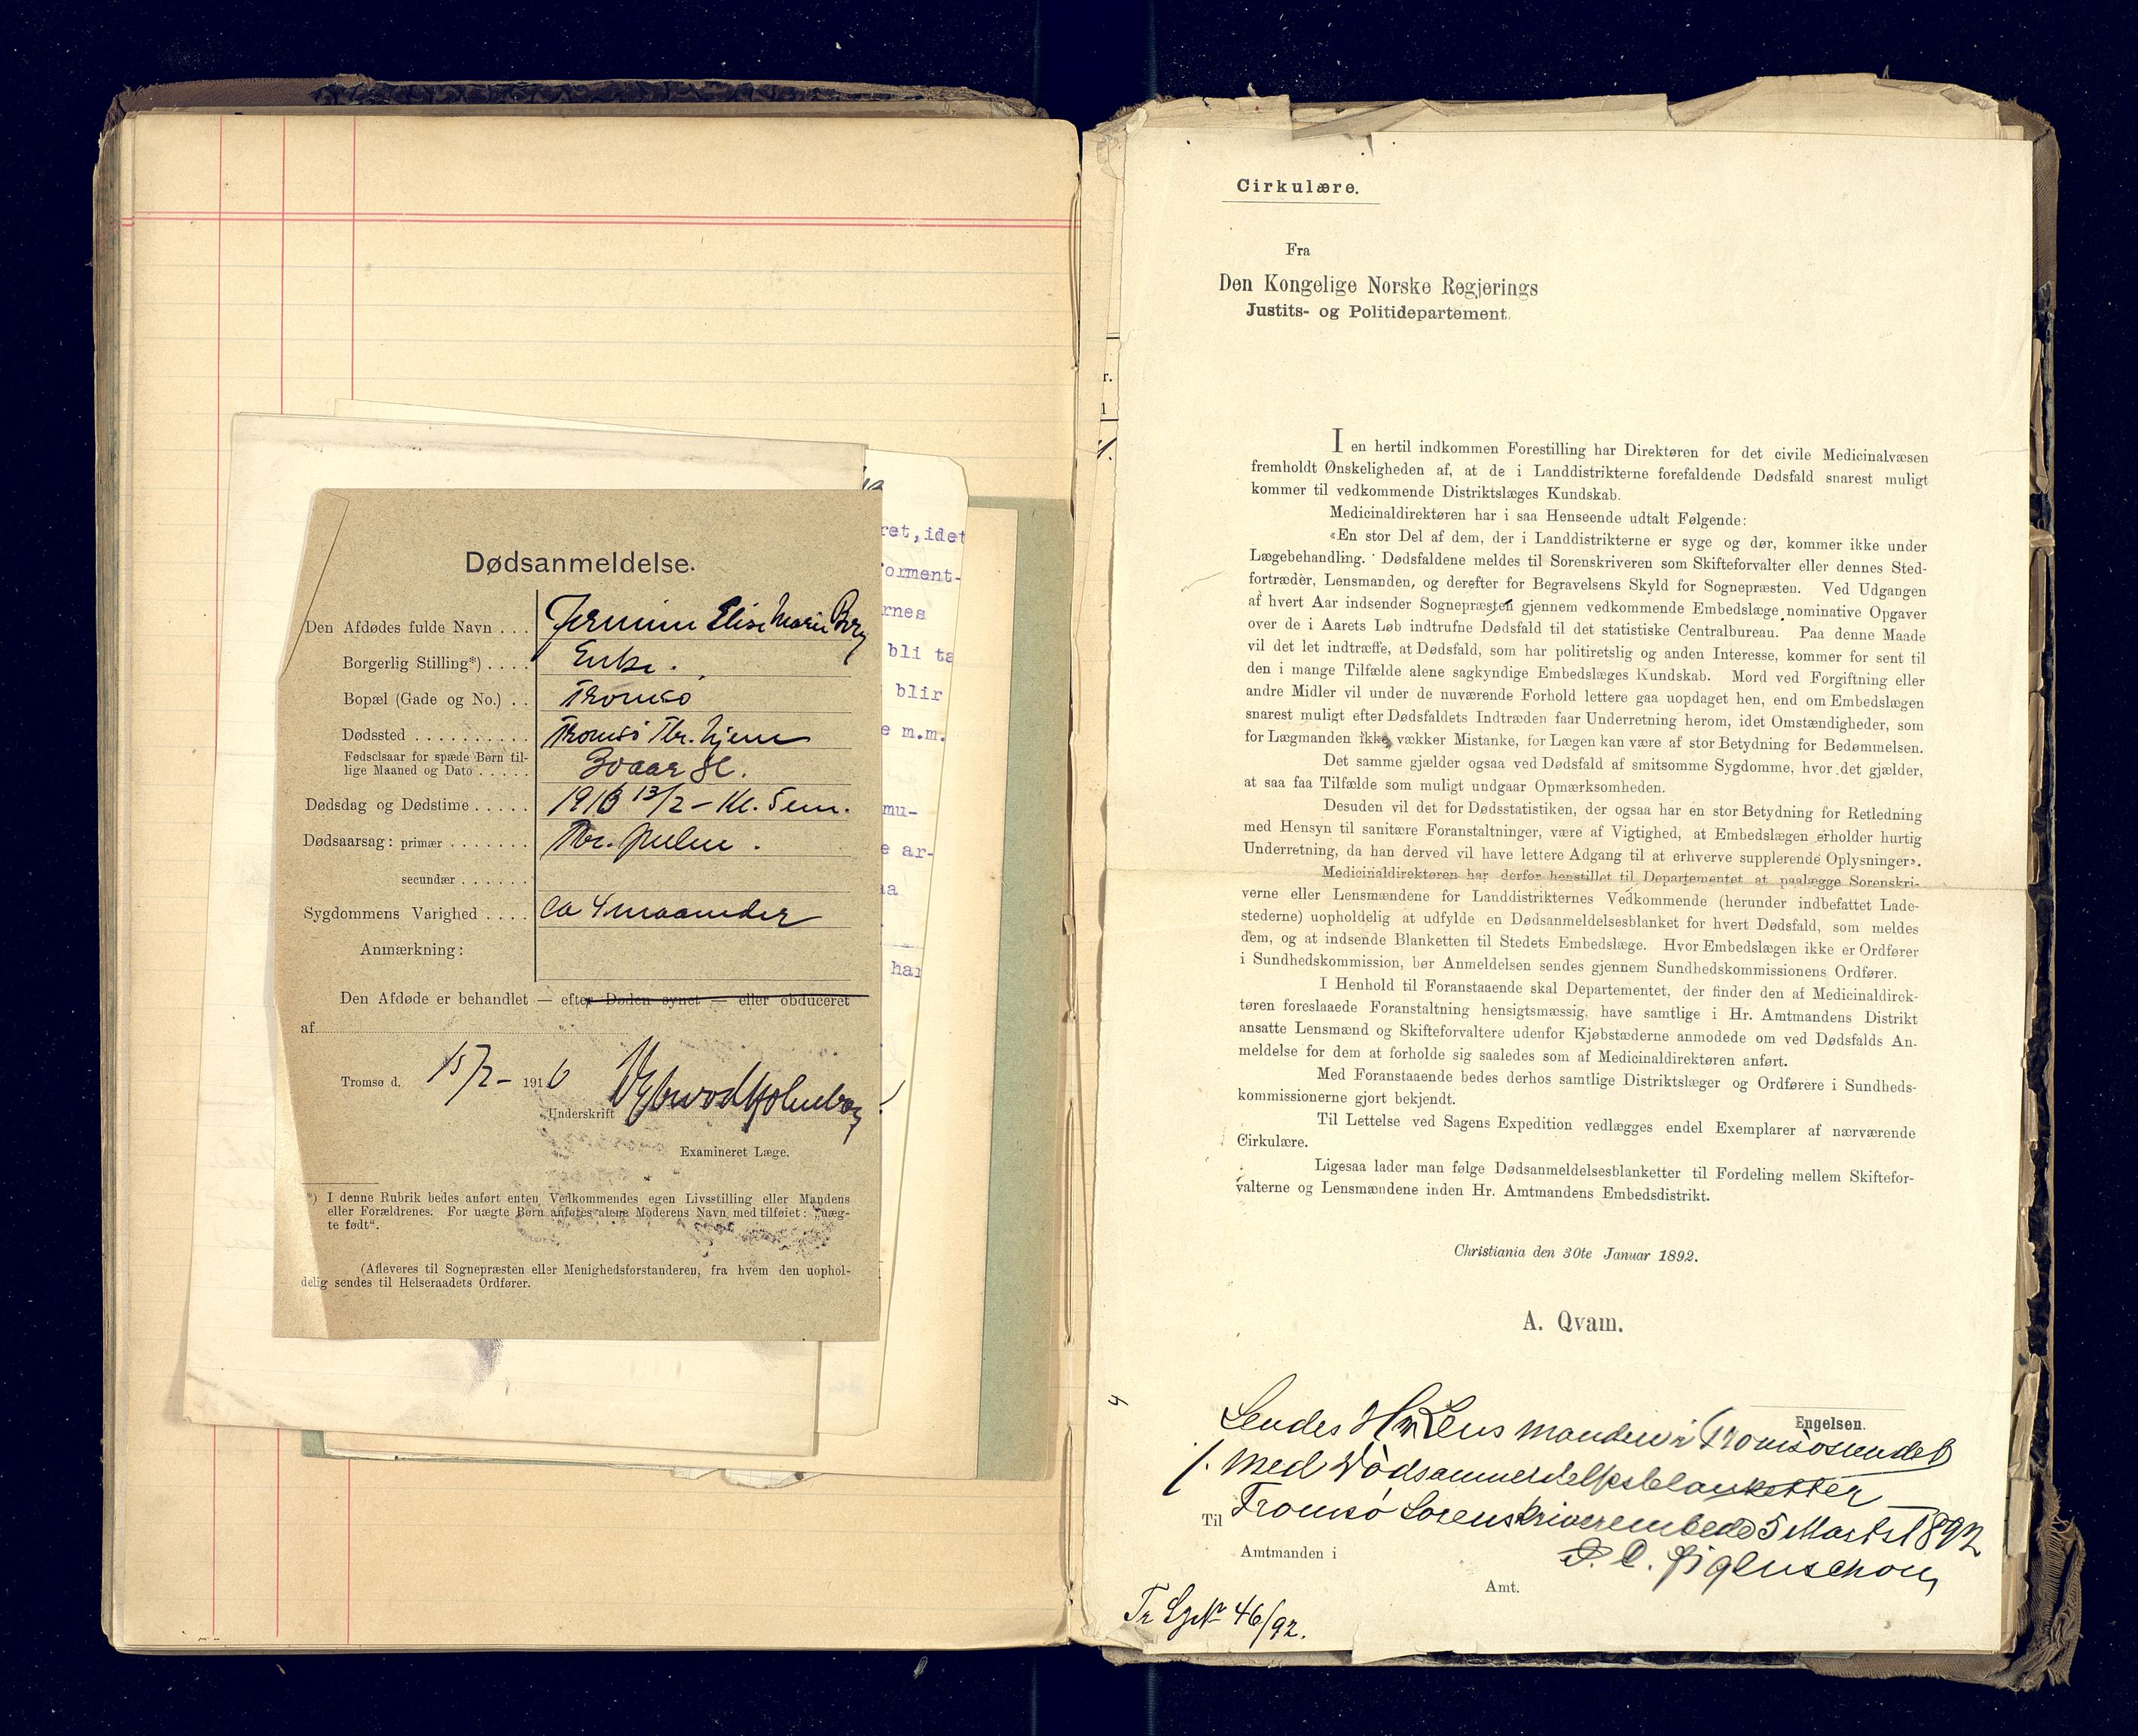 Dødsanmeldelse.
Den Afdødes fulde Navn . . . Elise Marie Berg
Borgerlig Stilling*) . . . . Enke.
Bopæl (Gade og No.) . . Tromsø
Dødssted . . . . . . . . . . Tromsø Tbr. hjem
Fødselsaar for spæde Børn til-
lige Maaned og Dato . . . . . 30 aar gl.
Dødsdag og Dødstime . . . . . 1916 13/2 – Kl. 5 em.
Dødsaarsag: primær . . . . . . . Tbr. pulm.
secundær . . . . . .
Sygdommens Varighed . . . . ca 4 maaneder
Anmærkning:
Den Afdøde er behandlet — efter Døden synet — eller obduceret
af
Tromsø d. 15/2 – 1916
Underskrift
Examineret Læge.
*) I denne Rubrik bedes anført enten Vedkommendes egen Livsstilling eller Mandens
eller Forældrenes. For uægte Børn anføtes alene Moderens Navn med tilføiet: „uæg-
te født“.
(Afleveres til Sognepræsten eller Menighedsforstanderen, fra hvem den uophol-
delig sendes til Helseraadets Ordfører.
ret, idet
orment-
rnes
bli ta
blir
e m.m.
mu-
e ar-
aa
har
Cirkulære.
Fra
Den Kongelige Norske Regjerings
Justits- og Politidepartement.
I en hertil indkommen Forestilling har Direktøren for det civile Medicinalvæsen
fremholdt Ønskeligheden af, at de i Landdistrikterne forefaldende Dødsfald snarest muligt
kommer til vedkommende Distriktslæges Kundskab.
Medicinaldirektøren har i saa Henseende udtalt Følgende:
«En stor Del af dem, der i Landdistrikterne er syge og dør, kommer ikke under
Lægebehandling. Dødsfaldene meldes til Sorenskriveren som Skifteforvalter eller dennes Sted-
fortræder, Lensmanden, og derefter for Begravelsens Skyld for Sognepræsten. Ved Udgangen
af hvert Aar indsender Sognepræsten gjennem vedkommende Embedslæge nominative Opgaver
over de i Aarets Løb indtrufne Dødsfald til det statistiske Centralbureau. Paa denne Maade
vil det let indtræffe, at Dødsfald, som har politiretslig og anden Interesse, kommer for sent til
den i mange Tilfælde alene sagkyndige Embedslæges Kundskab. Mord ved Forgiftning eller
andre Midler vil under de nuværende Forhold lettere gaa uopdaget hen, end om Embedslægen
snarest muligt efter Dødsfaldets Indtræden faar Underretning herom, idet Omstændigheder, som
for Lægmanden ikke vækker Mistanke, for Lægen kan være af stor Betydning for Bedømmelsen.
Det samme gjælder ogsaa ved Dødsfald af smitsomme Sygdomme, hvor det gjælder,
at saa faa Tilfælde som muligt undgaar Opmærksomheden.
Desuden vil det for Dødsstatistiken, der ogsaa har en stor Betydning for Retledning
med Hensyn til sanitære Foranstaltninger, være af Vigtighed, at Embedslægen erholder hurtig
Underretning, da han derved vil have lettere Adgang til at erhverve supplerende Oplysninger».
Medicinaldirektøren har derfor henstillet til Departementet at paalægge Sorenskri-
verne eller Lensmændene for Landdistrikternes Vedkommende (herunder indbefattet Lade-
stederne) uopholdelig at udfylde en Dødsanmeldelsesblanket for hvert Dødsfald, som meldes
dem, og at indsende Blanketten til Stedets Embedslæge. Hvor Embedslægen ikke er Ordfører
i Sundhedskommission, bør Anmeldelsen sendes gjennem Sundhedskommissionens Ordfører.
I Henhold til Foranstaaende skal Departementet, der finder den af Medicinaldirek-
tøren foreslaaede Foranstaltning hensigtsmæssig, have samtlige i Hr. Amtmandens Distrikt
ansatte Lensmænd og Skifteforvaltere udenfor Kjøbstæderne anmodede om ved Dødsfalds An-
meldelse for dem at forholde sig saaledes som af Medicinaldirektøren anført.
Med Foranstaaende bedes derhos samtlige Distriktslæger og Ordførere i Sundheds-
kommissionerne gjort bekjendt.
Til Lettelse ved Sagens Expedition vedlægges endel Exemplarer af nærværende
Cirkulære.
Ligesaa lader man følge Dødsanmeldelsesblanketter til Fordeling mellem Skiftefor-
valterne og Lensmændene inden Hr. Amtmandens Embedsdistrikt.
Christiania den 30te Januar 1892.
A. Qvam.
Engelsen.
Sendes Hr Lensmanden i Tromsøsundet
/. med Dødsanmeldelsesblanketter
Tromsø Sorenskriverembede 5 Marts 1892
Til
Amtmanden i
Amt.
46/92.